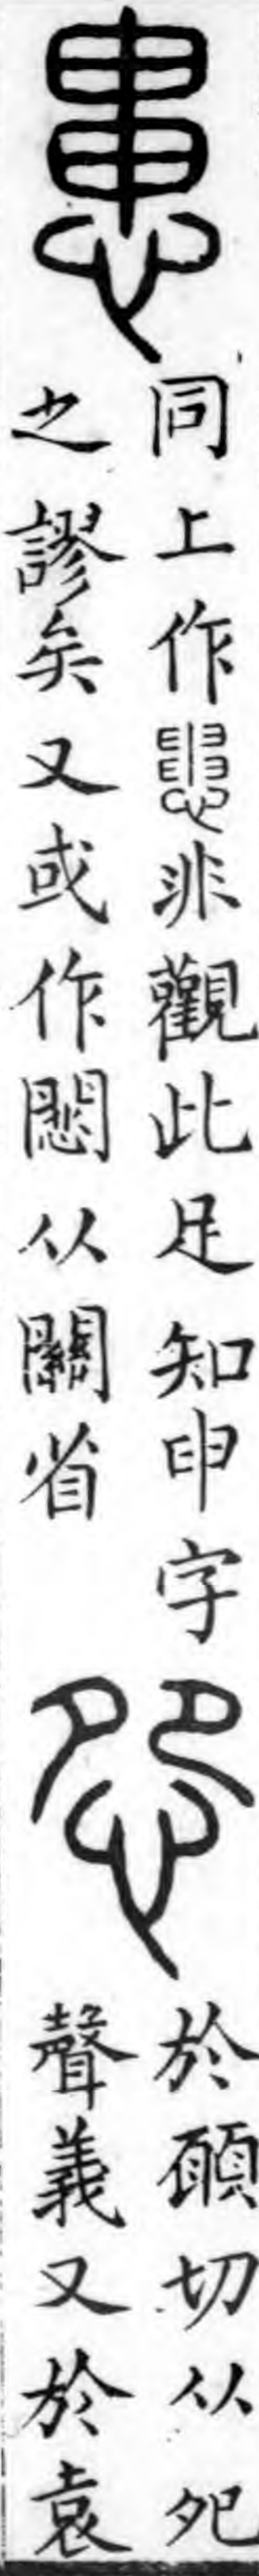 患
同上作非觀此足知申字
之謬矣又或作𢤶从關省
怨
於願切从夗
聲義又於袁